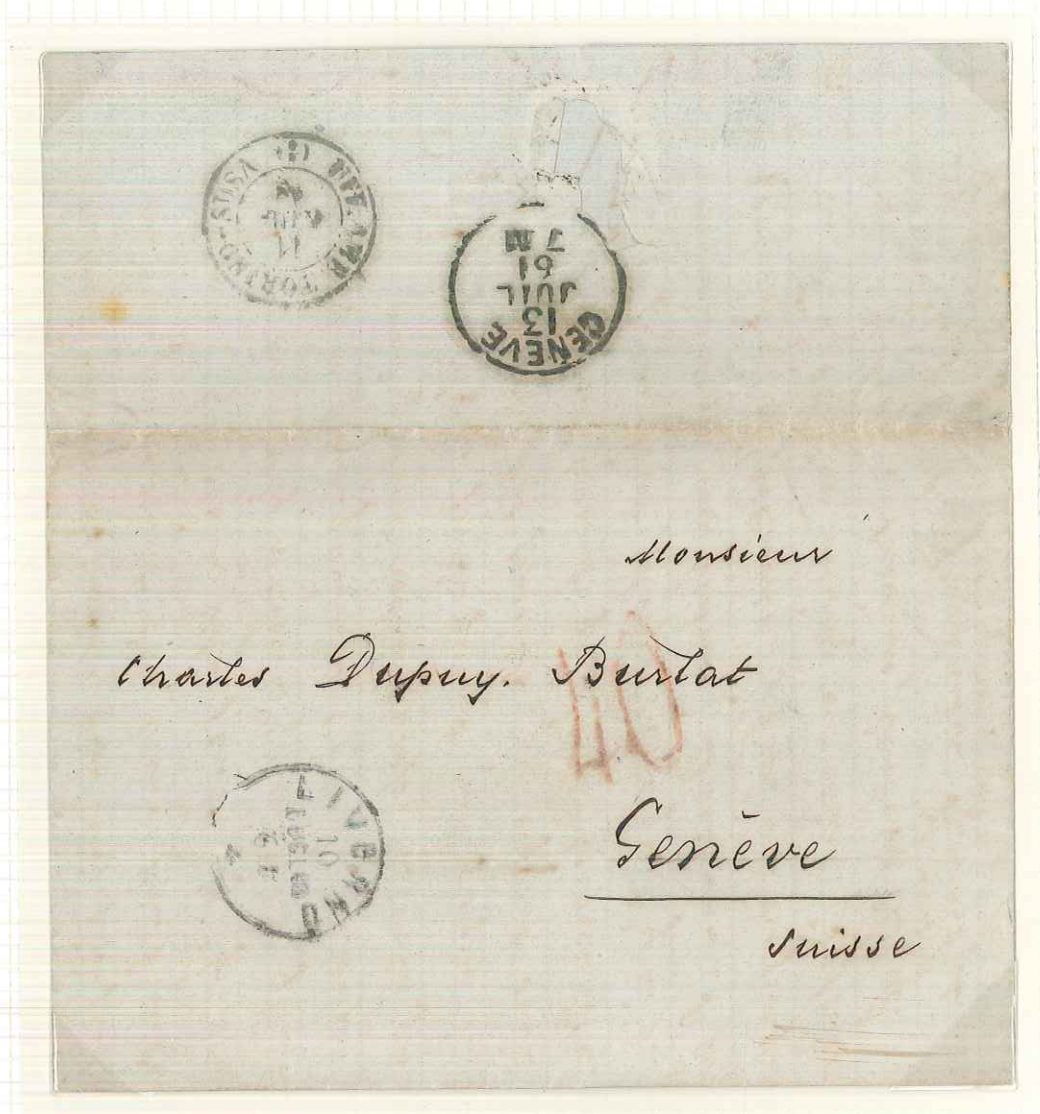 UFF. AMB. TORINO-SUSA (3)
11
GENÈVE
13
JUIL
61
7 M
Monsieur
Charles Dupuy. Burlat
40
LIVORNO
10
LUGL. 61
Genève
Suisse